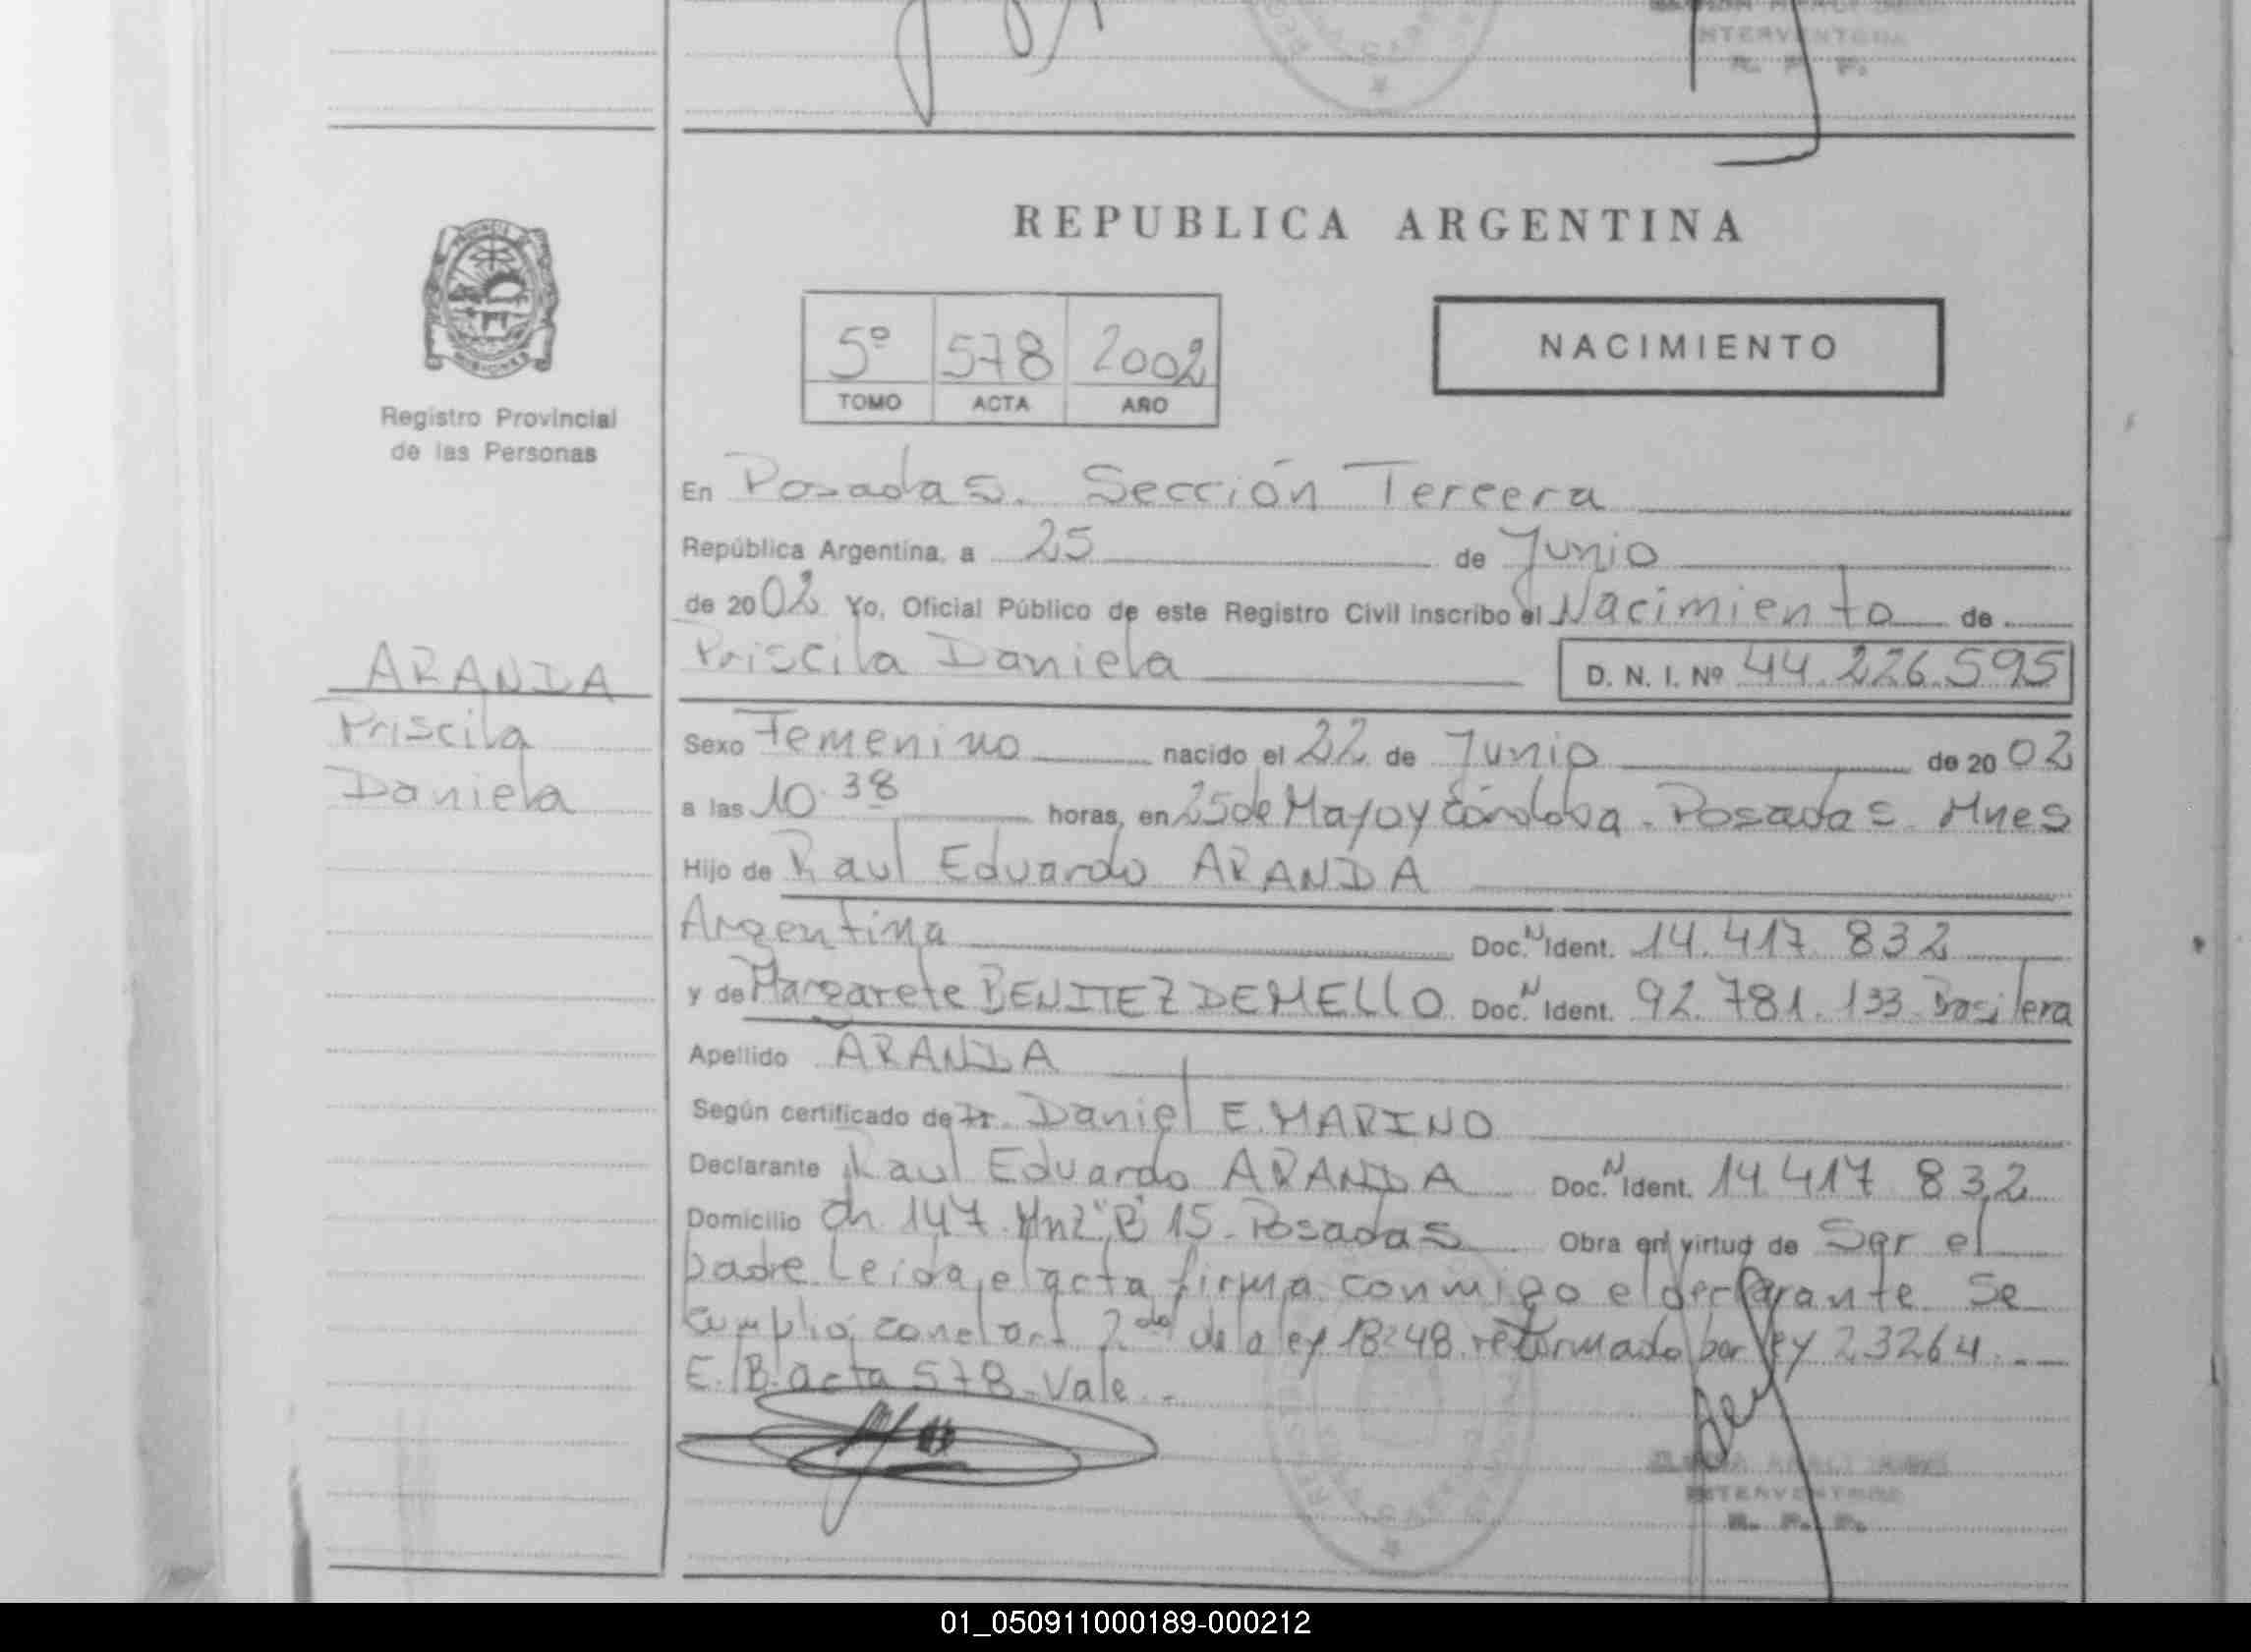 INTERVENTORA
R. P. P.
REPUBLICA ARGENTINA
5º 578 2002
TOMO ACTA AÑO
NACIMIENTO
Registro Provincial
de las Personas
En Posadas. Sección Tercera
República Argentina, a 25 de Junio
de 2002 Yo, Oficial Público de este Registro Civil inscribo el Nacimiento de
Priscila Daniela D. N. I. Nº 44.226.595
ARANDA
Priscila
Daniela
Sexo Femenino nacido el 22 de Junio de 2002
a las 10.38 horas, en 25 de Mayo y Córdoba - Posadas - Mnes
Hijo de Raul Eduardo ARANDA
Argentina Doc. N Ident. 14.417.832
y de Margarete BENITEZ DEMELLO Doc. N Ident. 92.781.133 Brasilera
Apellido ARANDA
Según certificado de Dr. Daniel E. MARINO
Declarante Raul Eduardo ARANDA Doc. N Ident. 14.417.832
Domicilio Ch 147. Mnz "B" 15 - Posadas Obra en virtud de Ser el
padre. Leida el acta firma conmigo el declarante Se
cumplió con el art 2do de la ley 18248 reformado por ley 23264. --
E. B. acta 578. Vale. -
INTERVENTORA
R. P. P.
01_050911000189-000212